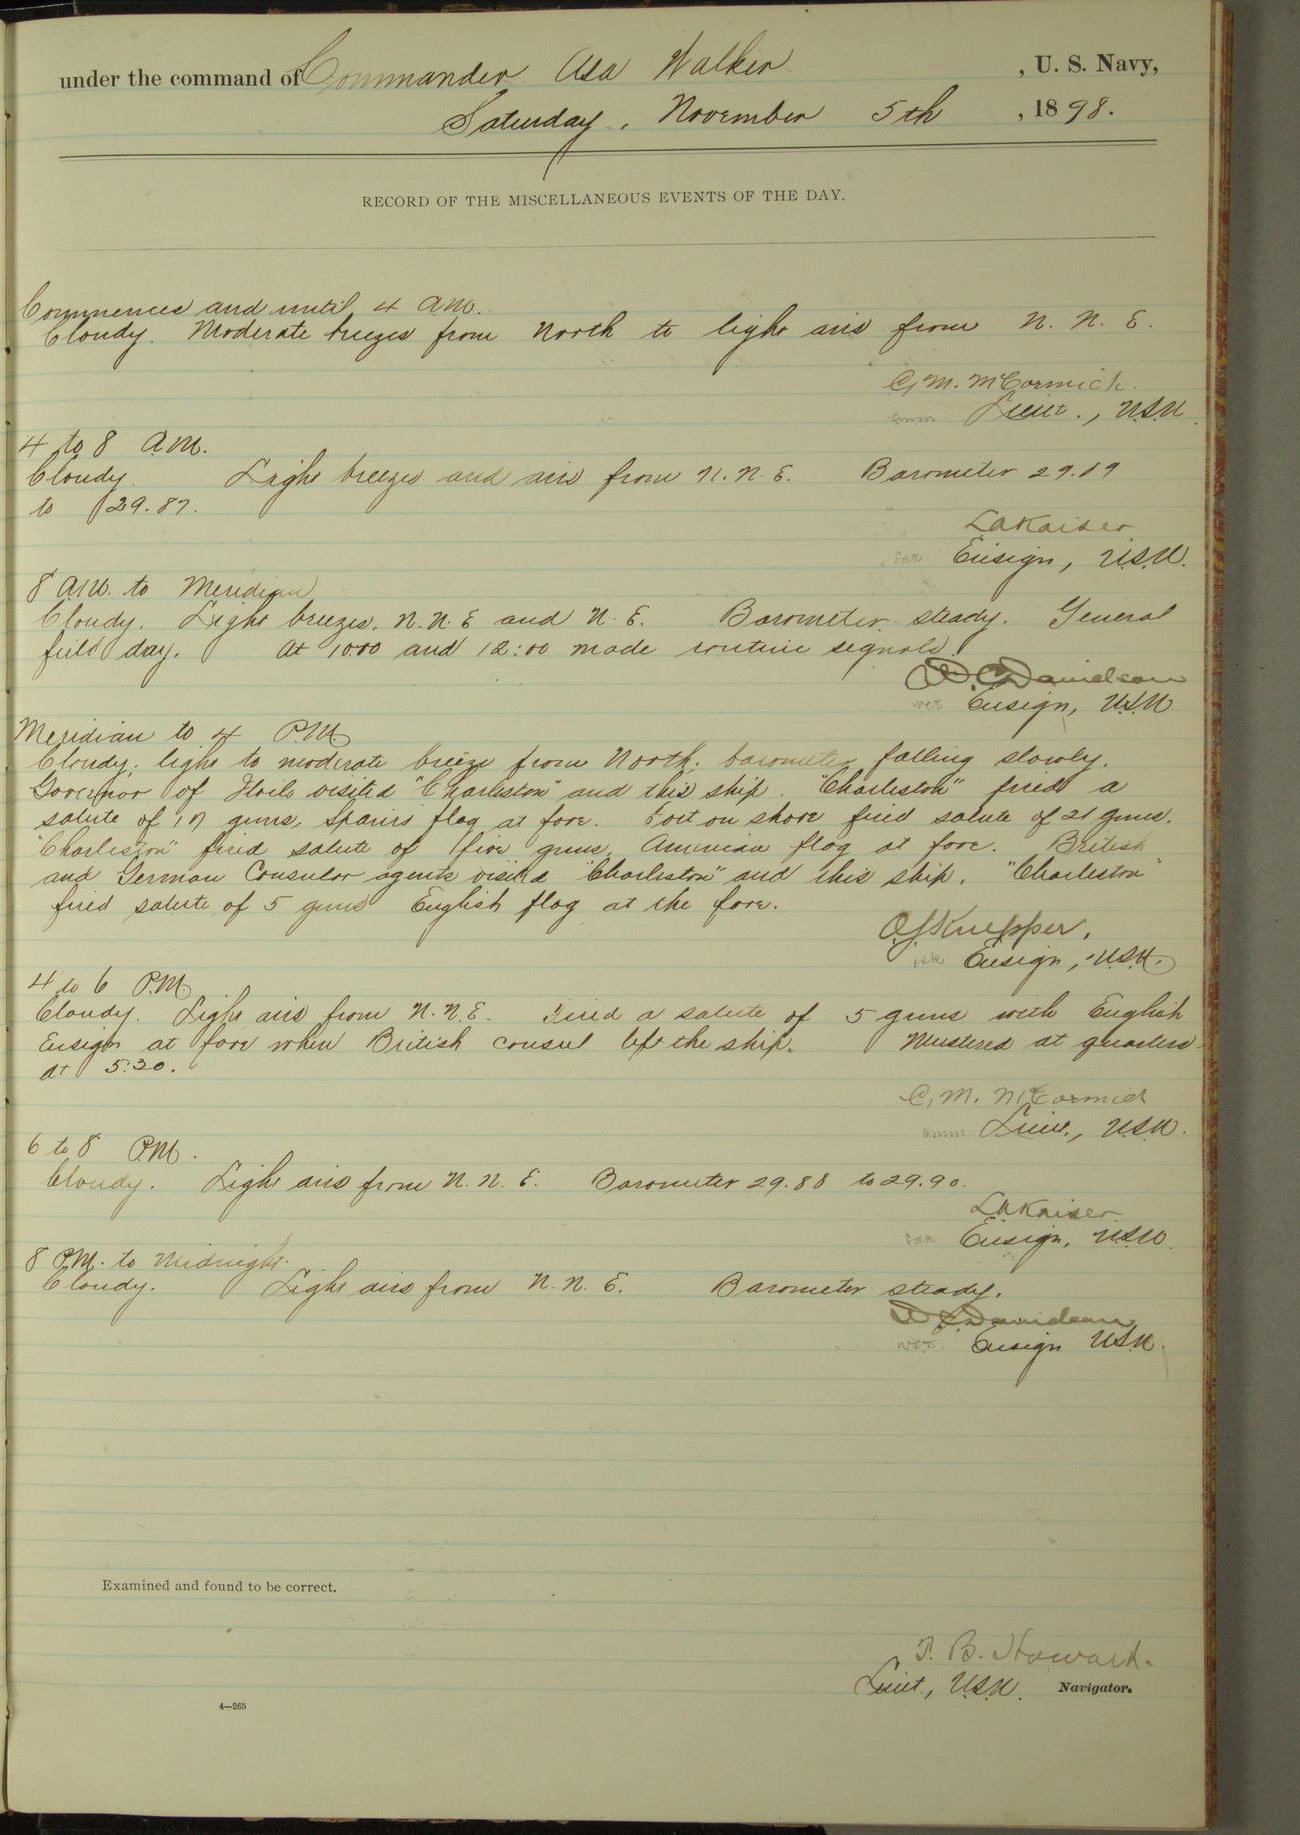 under the command of Commander Asa Walker, U. S. Navy,
Saturday, November 5th, 1898.
RECORD OF THE MISCELLANEOUS EVENTS OF THE DAY.
Commences and until 4 A.M.
Cloudy. Moderate breezes from North to light airs from N. N. E.
C. M. McCormick.
Lieut., U.S.N.
4 to 8 A.M.
Cloudy. Light breezes and airs from N. N. E. Barometer 29.89
to 29.87.
LAKaiser
Ensign, U.S.N.
8 A.M. to Meridian
Cloudy. Light breezes, N.N.E and N.E. Barometer steady. General
field day. At 10:00 and 12:00 made routine signals.
W.C. Davidson
Ensign, U.S.N.
Meridian to 4 P.M.
Cloudy; light to moderate breeze from North; barometer falling slowly.
Governor of Iloilo visited "Charleston" and this ship. "Charleston" fired a
salute of 17 guns, Spanish flag at fore. Fort on shore fired salute of 21 guns.
"Charleston" fired salute of five guns, American flag at fore. British
and German Consular agents visited "Charleston" and this ship. "Charleston"
fired salute of 5 guns English flag at the fore.
O.S Knepper,
Ensign, U.S.N.
4 to 6 P.M.
Cloudy. Light airs from N.N.E. Fired a salute of 5 guns with English
Ensign at fore when British consul left the ship. Mustered at quarters
at 5:30.
C. M. McCormick
Lieut., U.S.N.
6 to 8 P.M.
Cloudy. Light airs from N. N. E. Barometer 29.88 to 29.90.
LAKaiser
Ensign, U.S.N.
8 P.M. to Midnight.
Cloudy. Light airs from N. N. E. Barometer steady.
W C Davidson
Ensign U.S.N.
Examined and found to be correct.
T. B. Howard.
Lieut., U.S.N. Navigator.
4—265